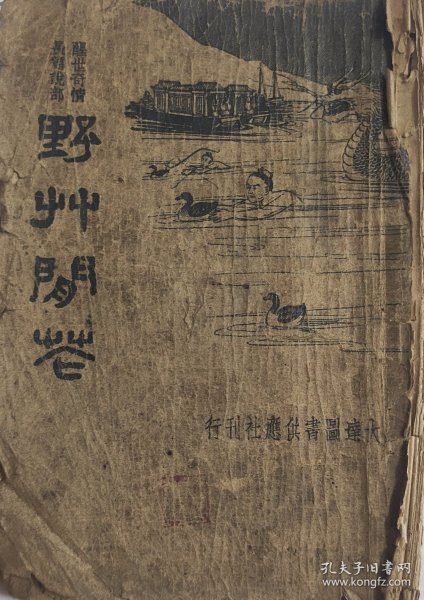 醒世奇情
長篇說部
野艸閒花
大達圖書供應社刊行
孔夫子旧书网
www.kongfz.com